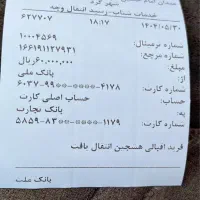 شهر کرد
خدمات شتاب-رسید انتقال وجه
۱۴۰۴/۰۵/۳۰ ۱۸:۱۷ ۶۲۷۷۰۷
شماره ترمینال: ۱۰۰۰۴۵۶۹
شماره مرجع: ۱۶۶۱۹۱۱۲۷۹۳۱
مبلغ: ۶۰,۰۰۰,۰۰۰ریال
از: بانک ملی
شماره کارت: ۶۰۳۷-۹۹**-****-۴۱۷۸
حساب: حساب اصلی کارت
به: بانک تجارت
شماره کارت: ۵۸۵۹-۸۳**-****-۱۱۷۹
فرید اقبالی همچنین انتقال یافت
بانک ملت